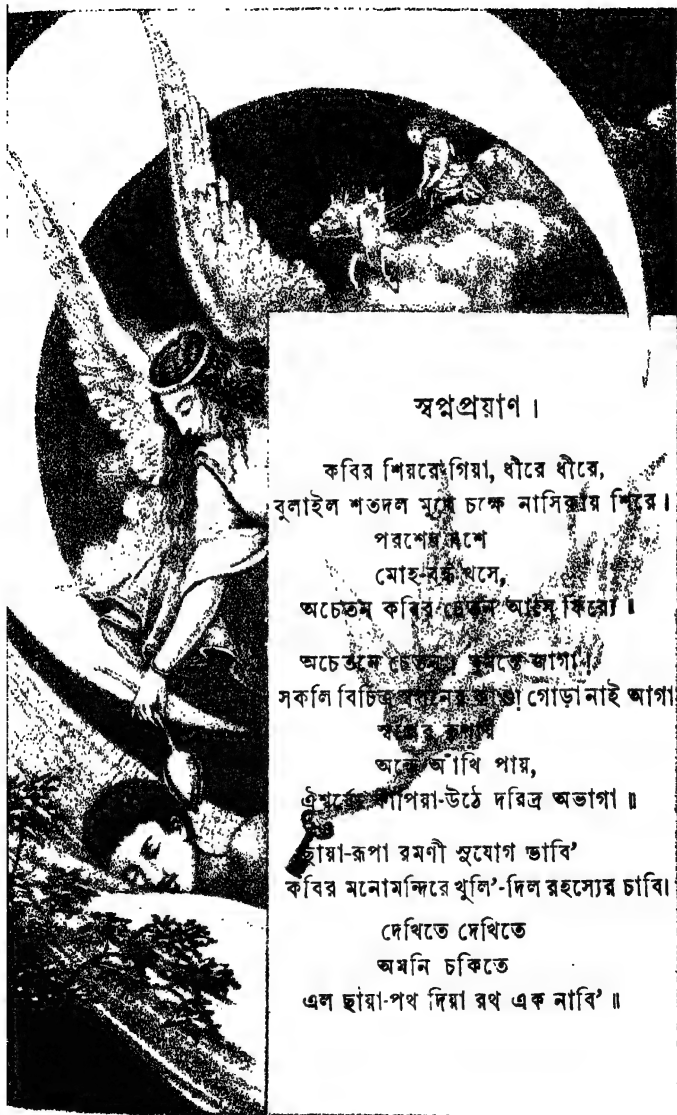 স্বপ্নপ্রয়াণ ।
কবির শিয়রে গিয়া, ধীরে ধীরে,
বুলাইল শতদল মুখে চক্ষে নাসিকায় শিরে ।
পরশের বশে
মোহ-বন্ধ খসে,
অচেতন কবির চেতন আসে ফিরে ॥
অচেতনে চেতন । ঘুমন্তে জাগা ।
সকলি বিচিত্র গোড়া নাই আগা
স্বপ্নের কৃপায়
অন্ধে আঁখি পায়,
ঐশ্বর্য্যে কাঁপিয়া-উঠে দরিদ্র অভাগা ॥
ছায়া-রূপা রমণী সুযোগ ভাবি’
কবির মনোমন্দিরে খুলি’-দিল রহস্যের চাবি।
দেখিতে দেখিতে
অমনি চকিতে
এল ছায়া-পথ দিয়া রথ এক নাবি’ ॥